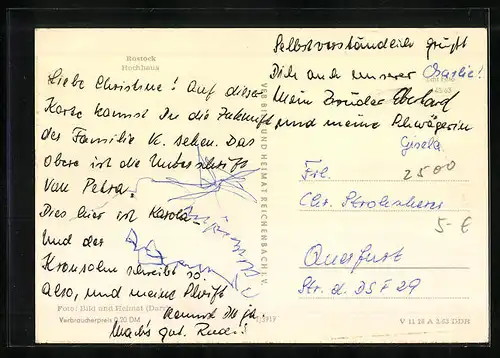 Rostock
Hochhaus
Liebe Christine! Auf dieser
Karte kannst Du die Zukunft
der Familie K. sehen. Das
obere ist die Unterschrift
von Petra.
Dies hier ist Karola
Und der
Kronsohn schreibt so
also, und meine Schrift
kennst Du ja.
Mach's gut. Rudi!
Foto: Bild und Heimat
Verbraucherpreis 0,20 DM
VEB BILD UND HEIMAT REICHENBACH I. V.
Selbstverständlich grüßt
Dich auch unserer Charlie!
Mein Bruder Eberhard
und meine Schwägerin
Gisela
Frl.
2500
Chr.
5-€
Querfurt
Str. d. DSF 29
V 11 28 A 3/63 DDR